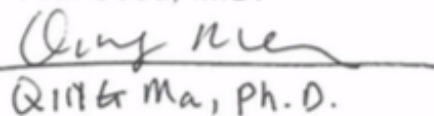 Qing Ma
QING Ma, Ph.D.